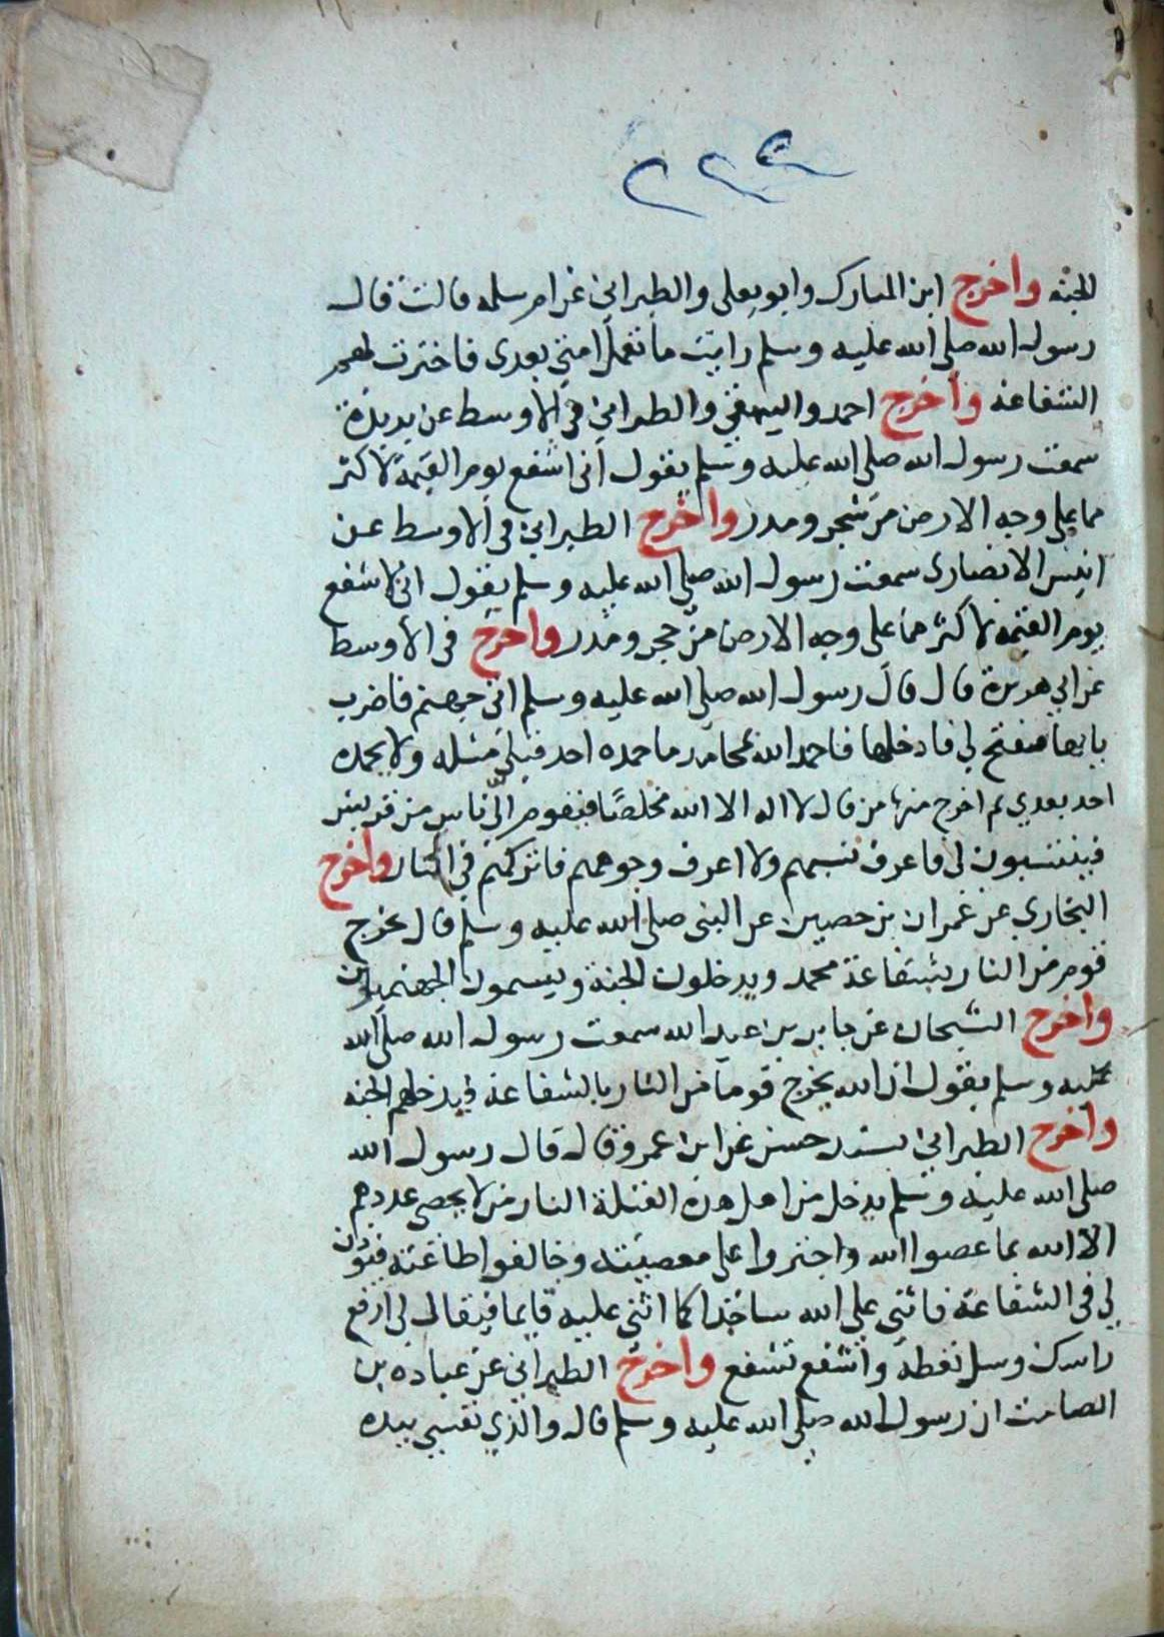 ٢٢٢
الجنة واخرج ابن المبارك وابو يعلى والطبراني عن ام سلمه قالت قال
رسول الله صلى الله عليه وسلم رايت ما تعمل امتي بعدى فاخترت لهم
الشفاعة واخرج احمد والبيهقي والطبراني في الاوسط عن بريدة
سمعت رسول الله صلى الله عليه وسلم يقول انى اشفع يوم القيمة لاكثر
مما على وجه الارض من شجر ومدر واخرج الطبراني في الاوسط عن
انيس الانصارى سمعت رسول الله صلى الله عليه وسلم يقول انى لاشفع
يوم القيمة لاكثر مما على وجه الارض من حجر ومدر واخرج في الاوسط
عن ابي هريرة قال قال رسول الله صلى الله عليه وسلم اتى جهنم فاضرب
بابها فيفتح لي فادخلها فاحمد الله بمحامد ما حمده احد قبلي مثله ولا يحمده
احد بعدي ثم اخرج منها من قال لا اله الا الله مخلصًا فيقوم الي ناس من قريش
فينتسبون لى فاعرف نسبهم ولا اعرف وجوههم فاتركهم في النار واخرج
البخاري عن عمران بن حصين عن النبى صلى الله عليه وسلم قال يخرج
قوم من النار بشفاعة محمد ويدخلون الجنة ويسمون الجهنميون
واخرج الشيخان عن جابر بن عبد الله سمعت رسول الله صلى الله
عليه وسلم يقول ان الله يخرج قوما من النار بالشفاعة فيدخلهم الجنة
واخرج الطبراني بسند حسن عن ابن عمرو قال قال رسول الله
صلى الله عليه وسلم يدخل من اهل هذه القبلة النار من لا يحصى عددهم
الا الله بما عصوا الله واجتروا على معصيته وخالفوا طاعته فيوذن
لي في الشفاعة فاثني على الله ساجدا كما اثنى عليه قايما فيقال لى ارفع
راسك وسل تعطه واشفع تشفع واخرج الطبراني عن عباده بن
الصامت ان رسول الله صلى الله عليه وسلم قال والذي نفسي بيده